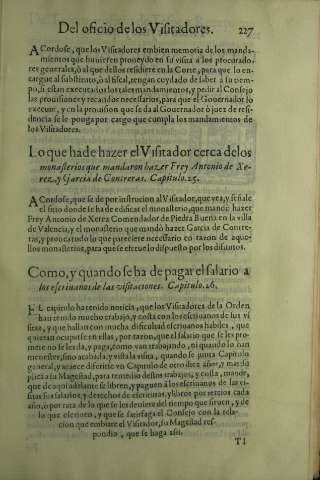 Del oficio de los Visitadores. 227
ACordose, que los Visitadores embien memoria de los manda-
mientos que huuieren proueydo en su visita à los procurado-
res generales, ò al que dellos residiere en la Corte, para que lo en-
cargue al substituto, ò al fiscal, tengan cuydado de saber a su tiem-
po, si estan executados los tales mandamientos, y pedir al Consejo
las prouisiones y recaudos necessarios, para que el Gouernador lo
execute, y en la prouision que se da al Gouernador ò juez de resi-
dencia se le ponga por cargo que cumpla los mandamientos de
los Visitadores.
Lo que ha de hazer el Visitador cerca de los
monasterios que mandaron hazer Frey Antonio de Xe-
rez, y Garcia de Contreras. Capitulo. 25.
ACordose, que se de por instrucion al Visitador, que vea, y señale
el sitio donde se ha de edificar el monasterio, que mandò hazer
Frey Antonio de Xerez Comendador de Piedra Buena en la villa
de Valencia, y el monasterio que mandò hazer Garcia de Contre-
ras, y prouea todo lo que pareciere necessario en razon de aque-
llos monasterios, para que se efectue lo dispuesto por los difuntos.
Como, y quando se ha de pagar el salario a
los escriuanos de las visitaciones. Capitulo. 26.
EL capitulo ha tenido noticia, que los Visitadores de la Orden
han tenido mucho trabajo, y costa con los escriuanos de sus vi
sitas, y que hallan con mucha dificultad escriuanos habiles, que
quieran ocuparse en ellas, por razon, que el salario que se les pro-
mete no se les da, y paga, como van trabajando, ni quando lo han
menester, sino acabada, y vista la visita, quando se junta Capitulo
general, y acaece diferirse vn Capitulo de otro diez años, y mas: su
plica a su Magestad, para remedio destos trabajos, y costa, mande,
que de aqui adelante se libren, y paguen à los escriuanos de las vi-
sitas sus salarios, y derechos de escrituras, y libros por tercios cada
año, ò por rata de lo que se les deuiere del tiempo que siruen, y de
lo que escriuen, y que se satisfaga el Consejo con la rela-
cion que embiare el Visitador, su Magestad res-
pondio, que se haga assi.